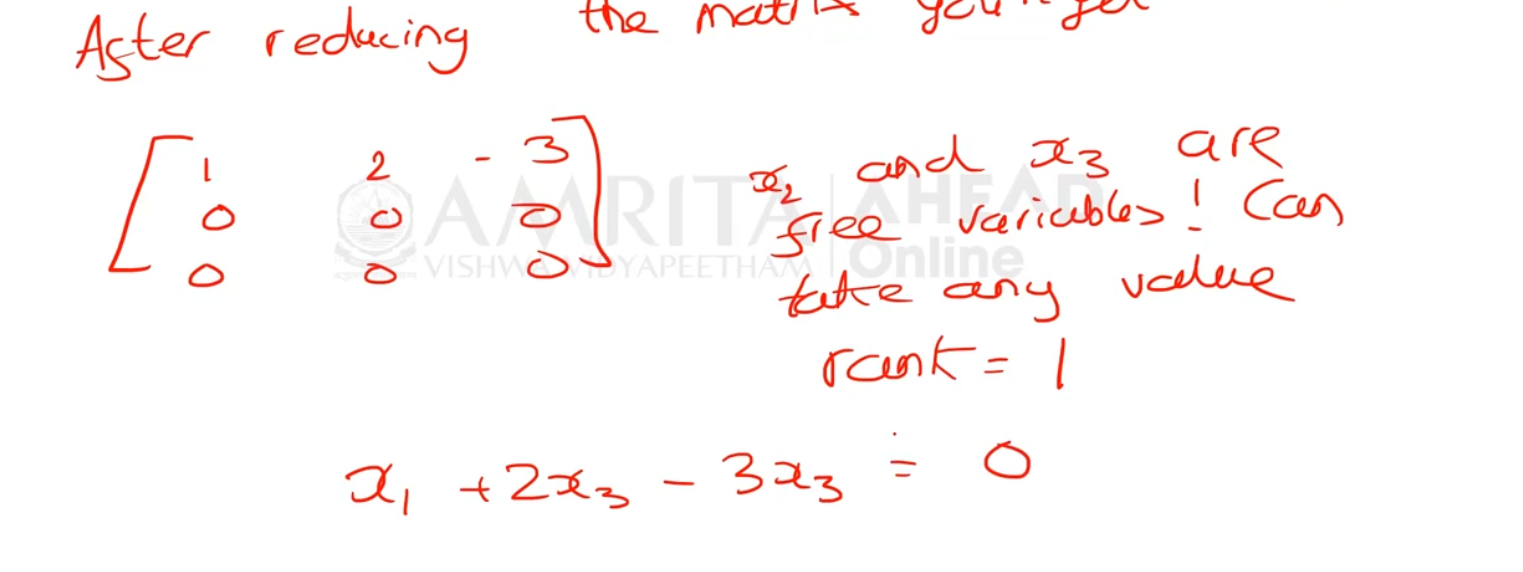 After reducing the matrix you'll get
1 2 -3
0 0 0
0 0 0
x₂ and x₃ are
free variables! Can
take any value
rank = 1
x₁ + 2x₃ - 3x₃ = 0
AMRITA AHEAD
VISHWA VIDYAPEETHAM Online